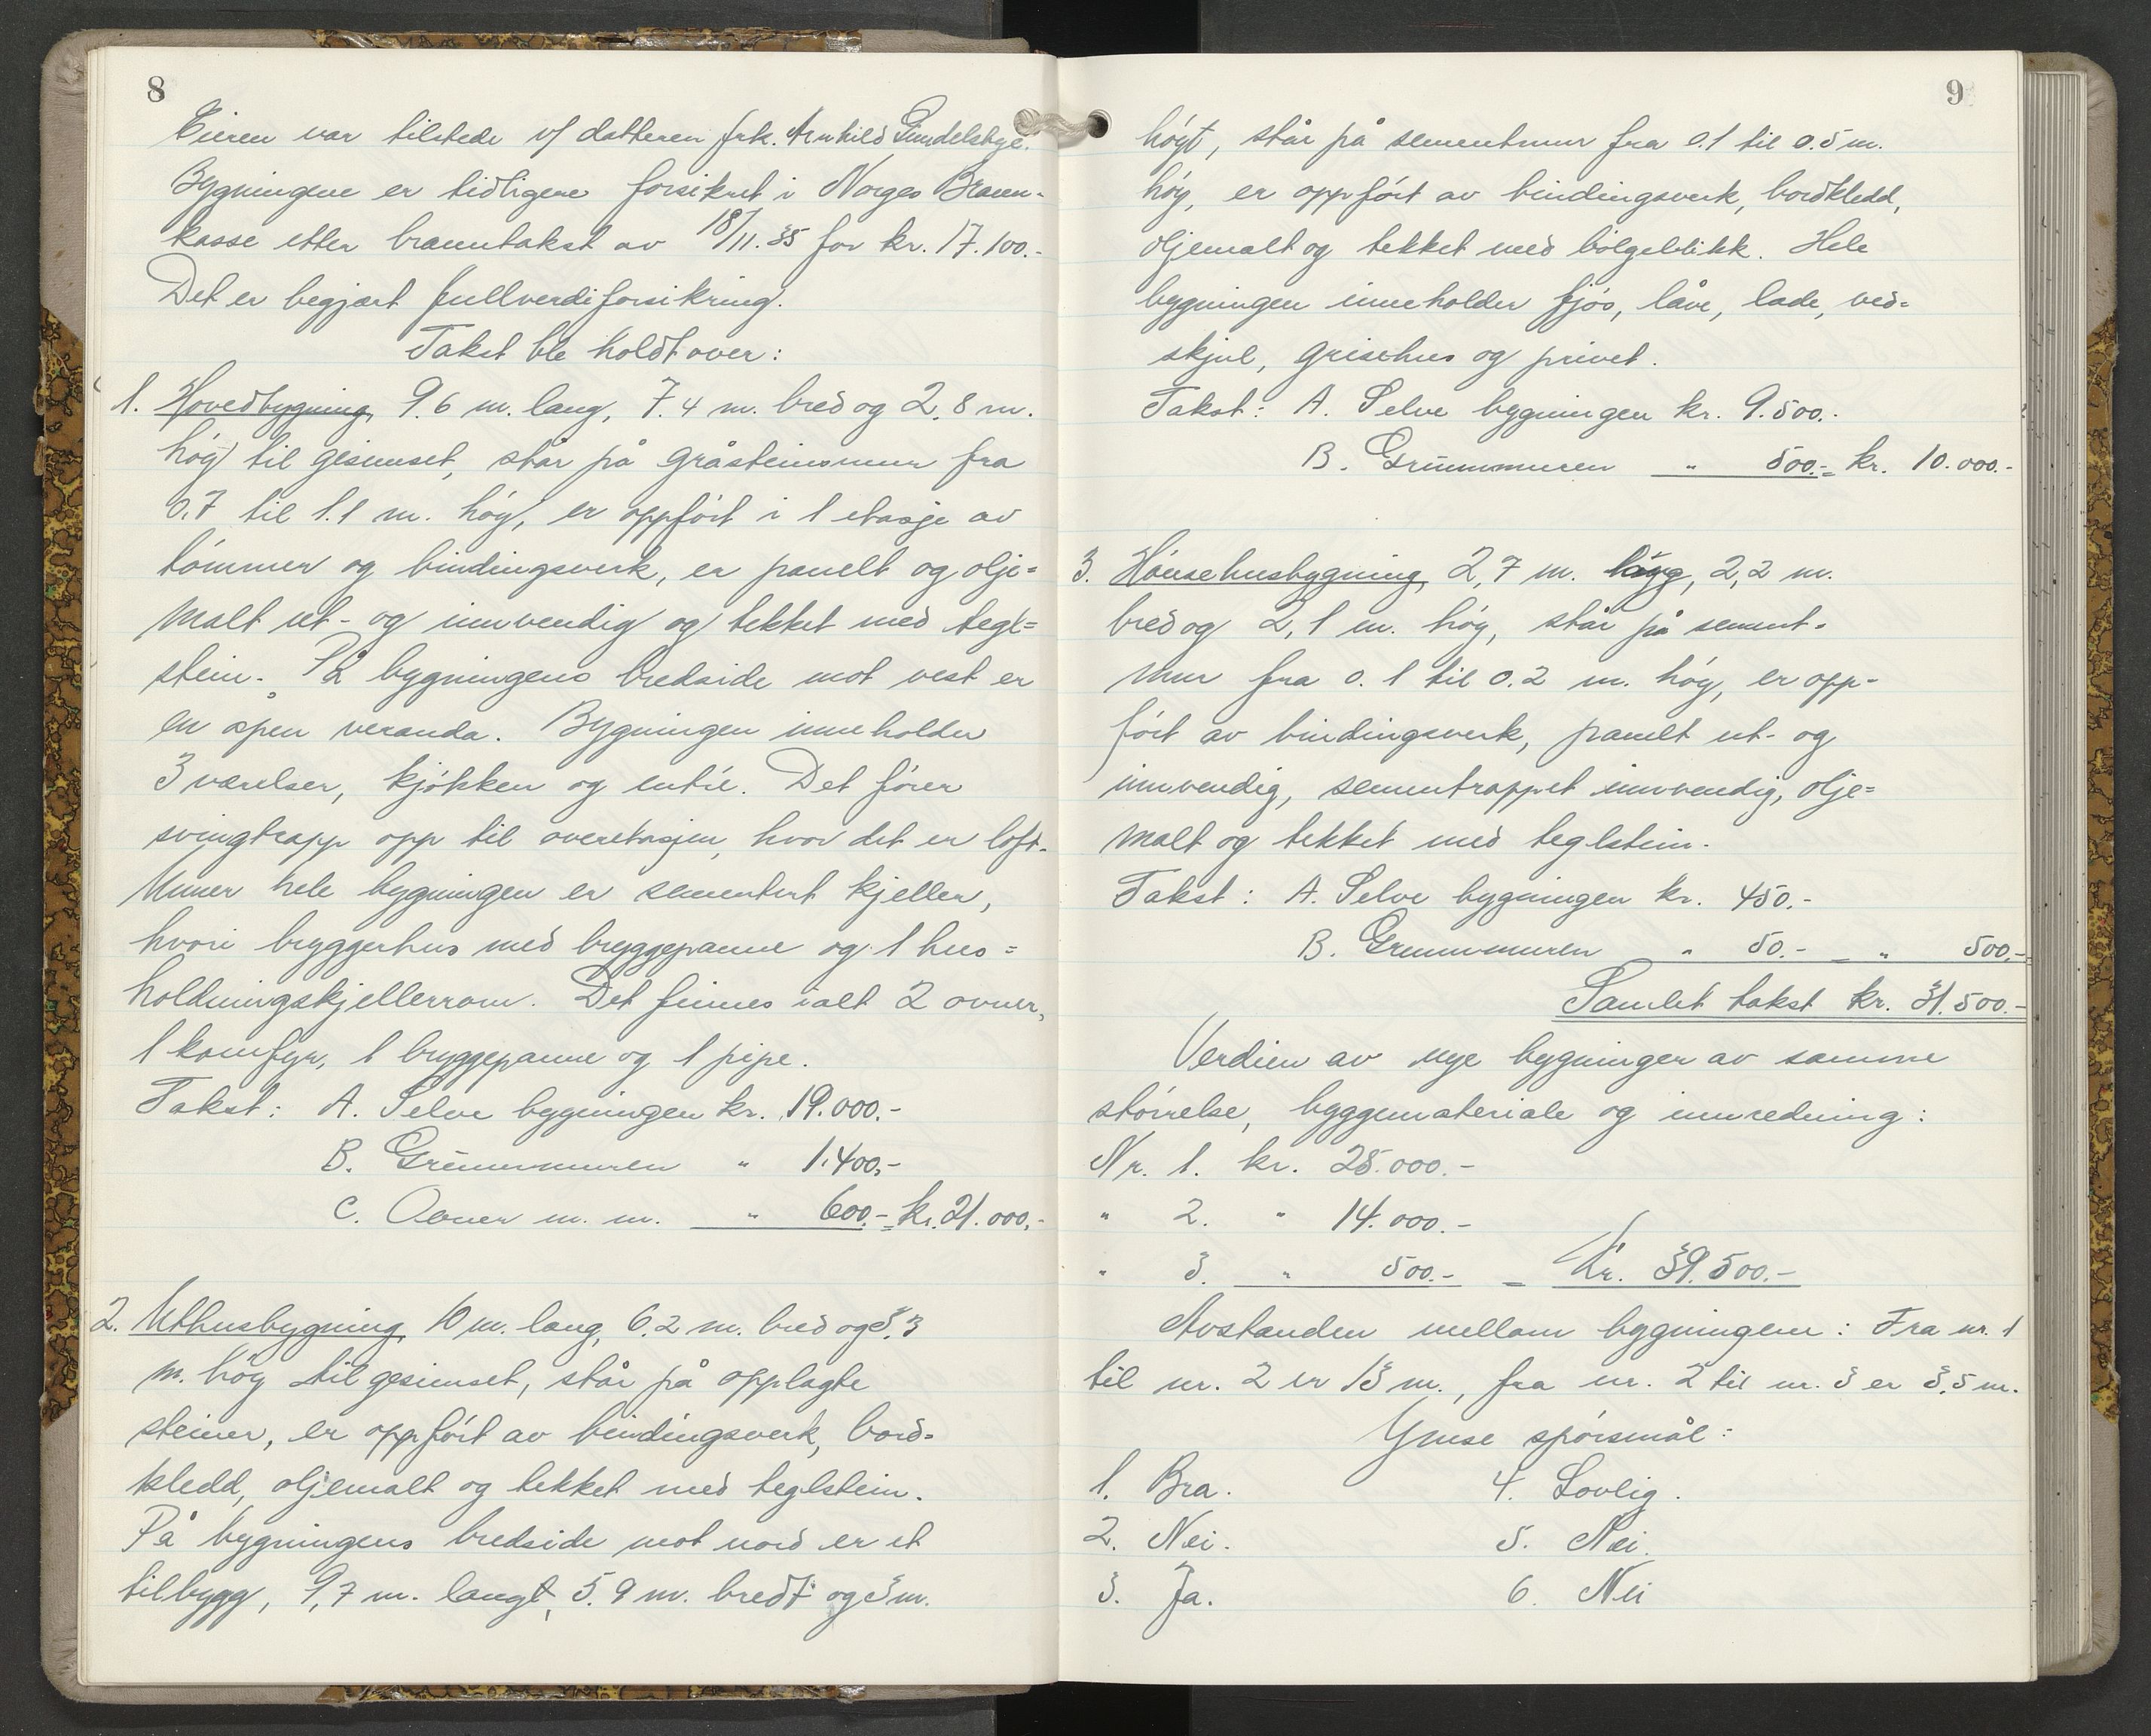 8
Eieren var tilstede v/ datteren frk. Arnhild Gundelsbye.
Bygningene er tidligere forsikret i Norges Brann-
kasse etter branntakst av 18/11.35 for kr. 17.100.-
Det er begjært fullverdiforsikring.
Takst ble holdt over:
1. Hovedbygning, 9.6 m. lang, 7.4 m. bred og 2,8 m.
høg til gesimset, står på gråsteinsmur fra
0.7 til 1.1 m. høg, er oppført i 1 etasje av
tømmer og bindingsverk, er panelt og olje=
malt ut- og innvendig og tekket med tegl=
stein. På bygningens bredside mot vest er
en åpen veranda. Bygningen inneholder
3 værelser, kjøkken og entré. Det fører
svingtrapp opp til overetasjen, hvor det er loft.
Unner hele bygningen er sementert kjeller,
hvori bryggerhus med bryggepanne og 1 hus=
holdningskjellerrom. Det finnes ialt 2 ovner,
1 komfyr, 1 bryggepanne og 1 pipe.
Takst: A. Selve bygningen kr. 19.000.-
B. Grunnmuren " 1.400.-
C. Ovner m. m. " 600.- = kr. 21.000.-
2. Uthusbygning, 10 m. lang, 6.2 m. bred og 5.3
m. høg til gesimset, står på opplagte
steiner, er oppført av bindingsverk, bord=
kledd, oljemalt og tekket med teglstein.
På bygningens bredside mot nord er et
tilbygg, 9,7 m. langt, 5.9 m. bredt og 3 m.
9
høgt, står på sementmur fra 0.1 til 0.5 m.
høg, er oppført av bindingsverk, bordkledd,
oljemalt og tekket med bølgeblikk. Hele
bygningen inneholder fjøs, låve, lade, ved=
skjul, grisehus og privet.
Takst: A. Selve bygningen kr. 9.500.-
B. Grunnmuren " 500.- = kr. 10.000.-
3. Hønsehusbygning, 2,7 m. lang, 2,2 m.
bred og 2,1 m. høg, står på sement-
mur fra 0.1 til 0.2 m. høg, er opp-
ført av bindingsverk, panelt ut- og
innvendig, sementrappet innvendig, olje=
malt og tekket med teglstein.
Takst: A. Selve bygningen kr. 450.-
B. Grunnmuren " 50.- = " 500.-
Samlet takst kr. 31.500.-
Verdien av nye bygninger av samme
størrelse, byggemateriale og innredning:
Nr. 1. kr. 25.000.-
" 2. " 14.000.-
" 3. " 500.- = Kr. 39.500.-
Avstanden mellom bygningene: Fra nr. 1
til nr. 2 er 13 m., fra nr. 2 til nr. 3 er 3.5 m.
Ymse spørsmål:
1. Bra. 4. Lovlig.
2. Nei. 5. Nei.
3. Ja. 6. Nei